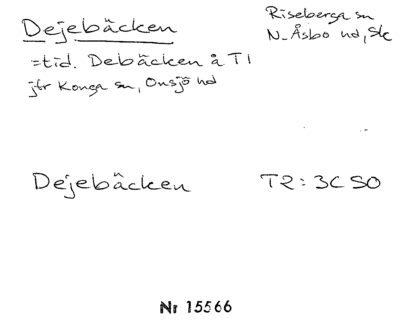 Dejebäcken
Riseberga sn
N. Åsbo hd, Sk
=tid. Debäcken å T1
jfr Konga sn, Onsjö hd
Dejebäcken T2: 3C SO
Nr 15566